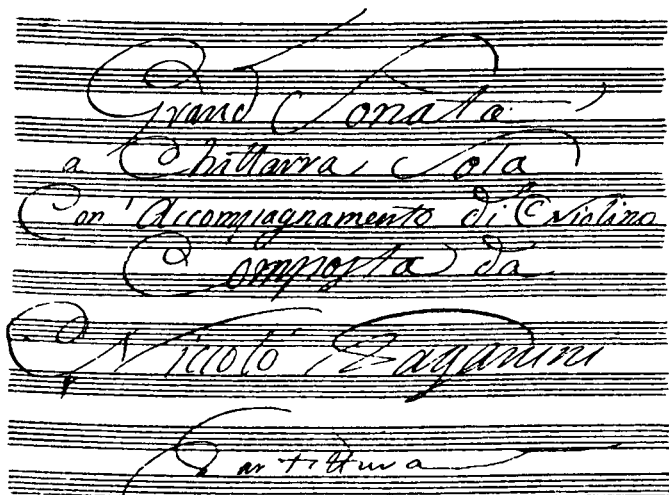 Grand Sonata
a Chittarra Sola
Con Accompagnamento di Violino
Composta da
Niccoló Paganini
Partittura